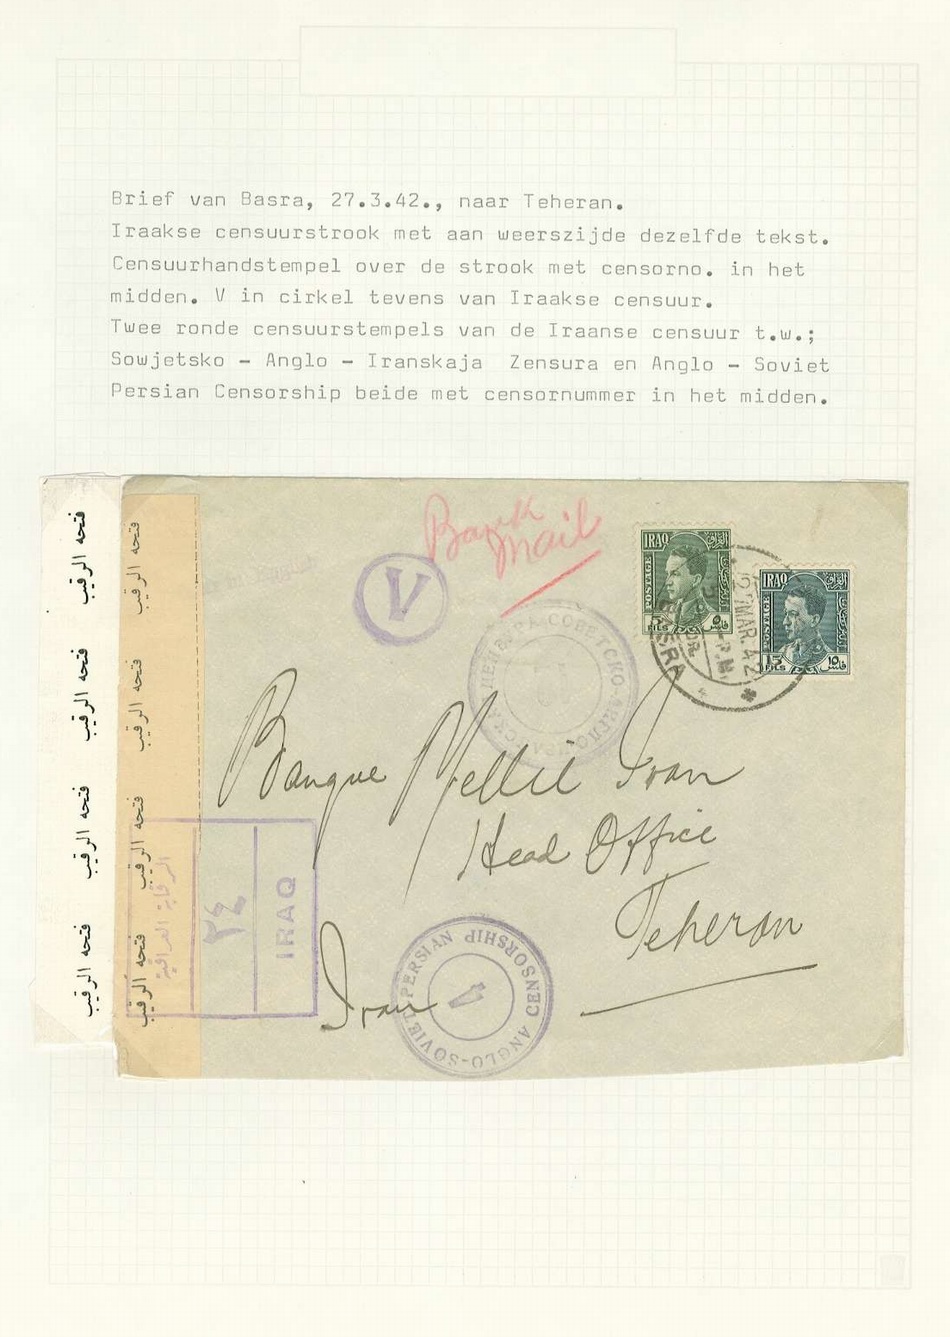 Brief van Basra, 27.3.42., naar Teheran.
Iraakse censuurstrook met aan weerszijde dezelfde tekst.
Censuurhandstempel over de strook met censorno. in het
midden. V in cirkel tevens van Iraakse censuur.
Twee ronde censuurstempels van de Iraanse censuur t.w.;
Sowjetsko - Anglo - Iranskaja Zensura en Anglo - Soviet
Persian Censorship beide met censornummer in het midden.
Bank
Mail
V
IRAQ
POSTAGE
5
FILS
٥
فلس
IRAQ
POSTAGE
15
FILS
١٥
فلس
MAR. 42
BASRA
СОВЕТСКО-
Banque Mellié Iran
Head Office
Teheran
Iran
ANGLO-SOVIET PERSIAN CENSORSHIP
IRAQ
٢٤
الرقابة العراقية
فتحه الرقيب
فتحه الرقيب
فتحه الرقيب
فتحه الرقيب
فتحه الرقيب
فتحه الرقيب
فتحه الرقيب
فتحه الرقيب